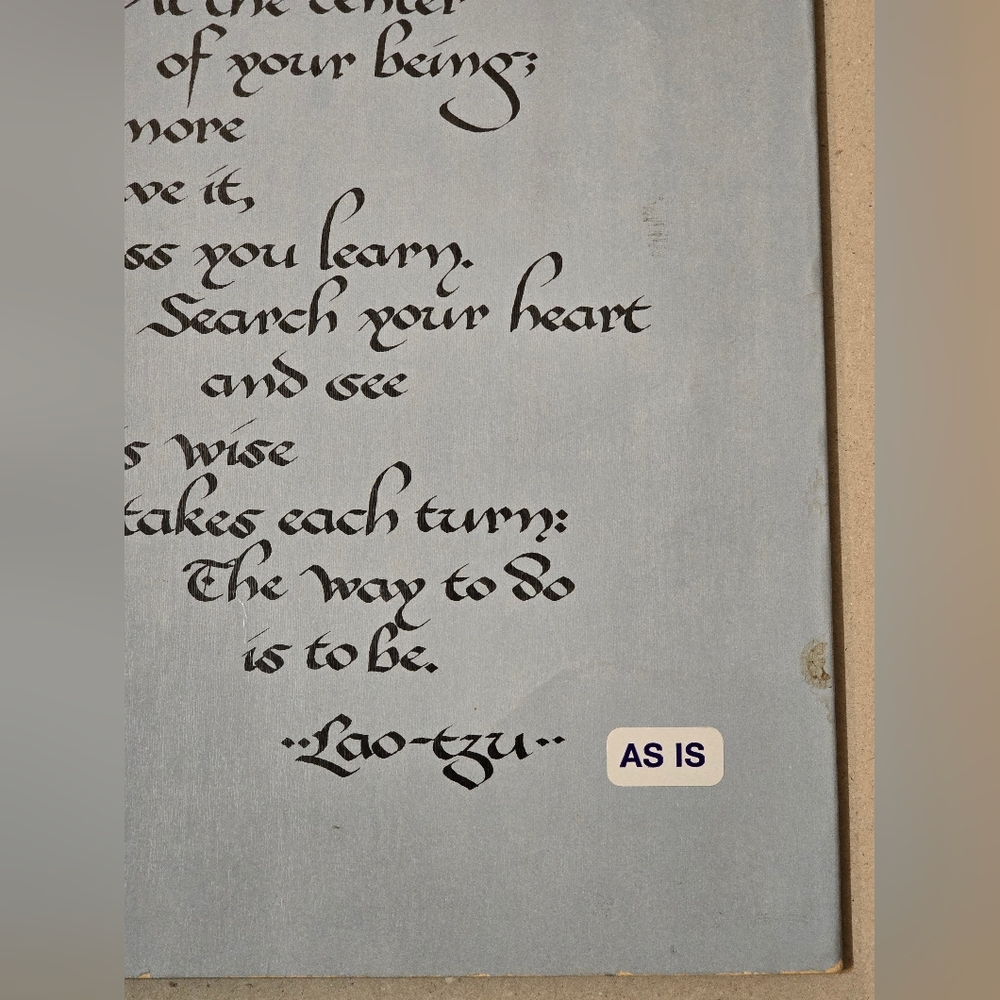 At the center
of your being;
more
ve it,
ss you learn.
Search your heart
and see
s wise
takes each turn:
The way to do
is to be.
··Lao-tzu··
AS IS